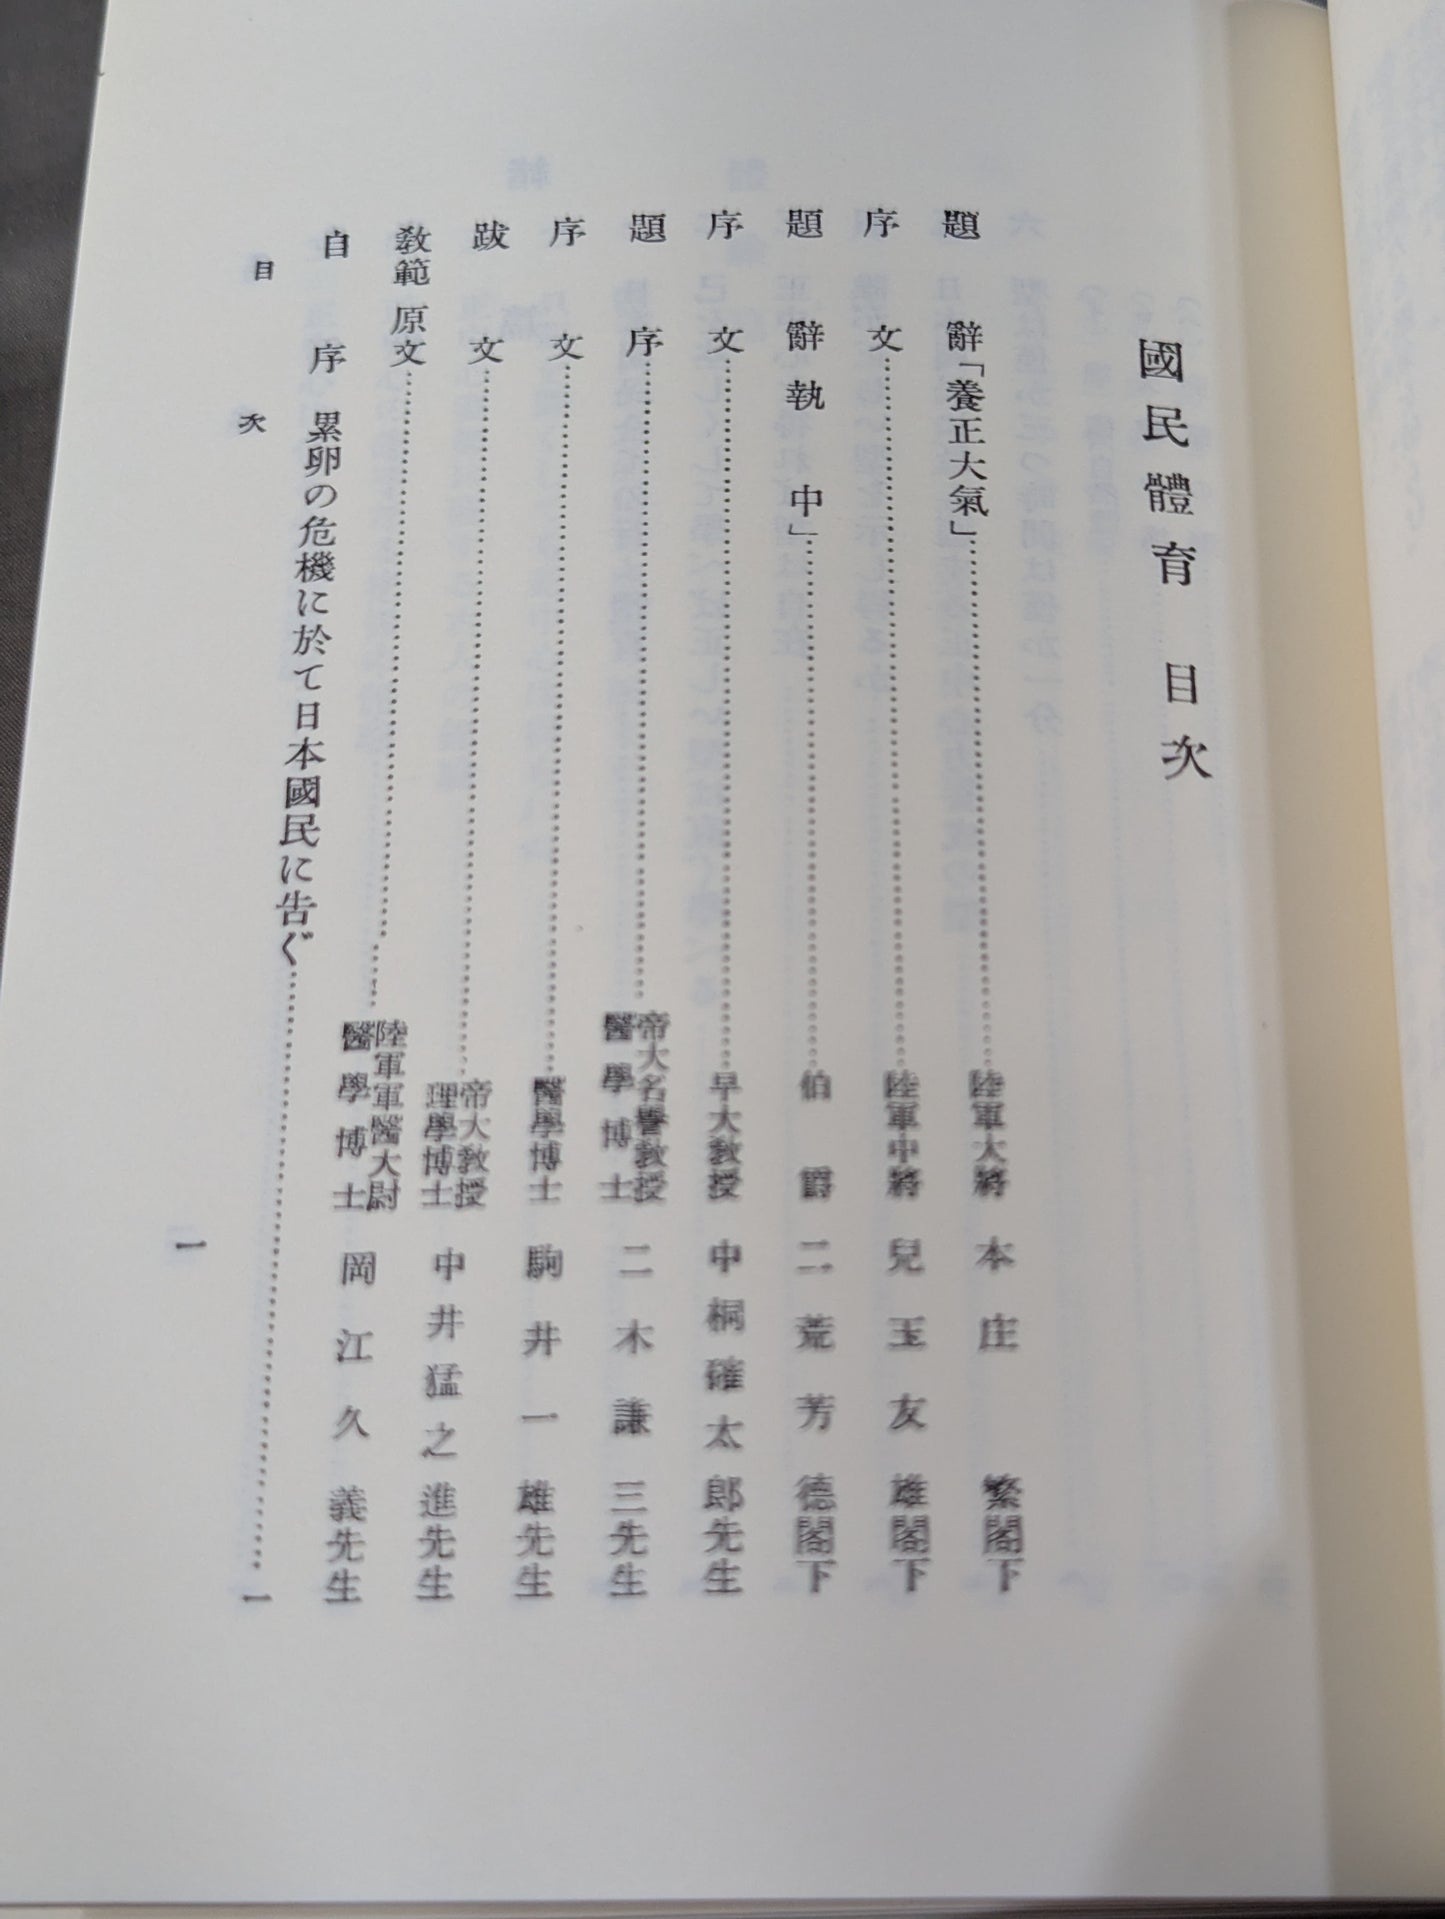 國民體育 目次
題 辭「養正大氣」……陸軍大將 本庄 繁閣下
序 文……陸軍中將 兒玉友雄閣下
題 辭 執 中」……伯爵 二荒芳德閣下
序 文……早大教授 中桐確太郎先生
題 序……帝大名譽教授 醫學博士 二木謙三先生
序 文……醫學博士 駒井一雄先生
跋 文……帝大教授 理學博士 中井猛之進先生
教範原文……陸軍軍醫大尉 醫學博士 岡江久義先生
自 序 累卵の危機に於て日本國民に告ぐ……一
目 次 一